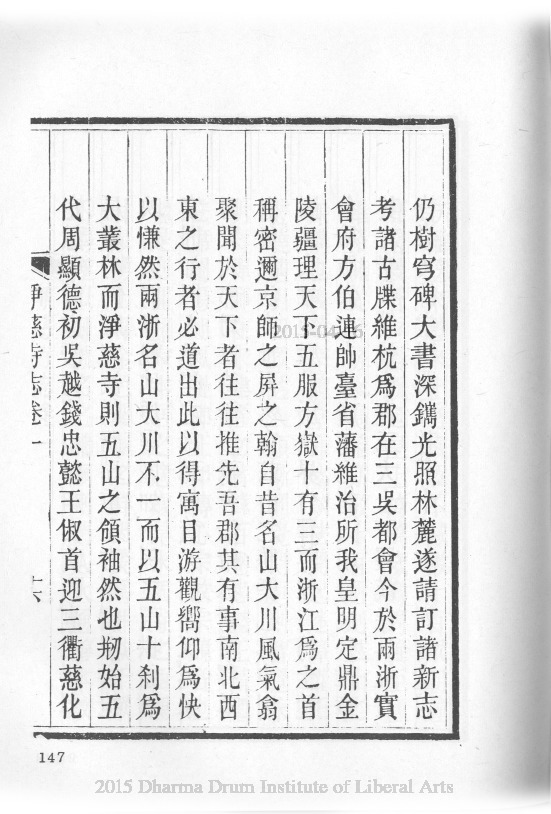 仍樹穹碑大書深鐫光照林麓遂請訂諸新志
考諸古牒維杭爲郡在三吳都會今於兩浙實
會府方伯連帥臺省藩維治所我皇明定鼎金
陵疆理天下五服方嶽十有三而浙江爲之首
稱密邇京師之屏之翰自昔名山大川風氣翕
聚聞於天下者往往推先吾郡其有事南北西
東之行者必道出此以得寓目游觀嚮仰爲快
以慊然兩浙名山大川不一而以五山十刹爲
大叢林而淨慈寺則五山之領袖然也剏始五
代周顯德初吳越錢忠懿王俶首迎三衢慈化
淨慈寺志卷一
十六
147
2015-04-16
2015 Dharma Drum Institute of Liberal Arts